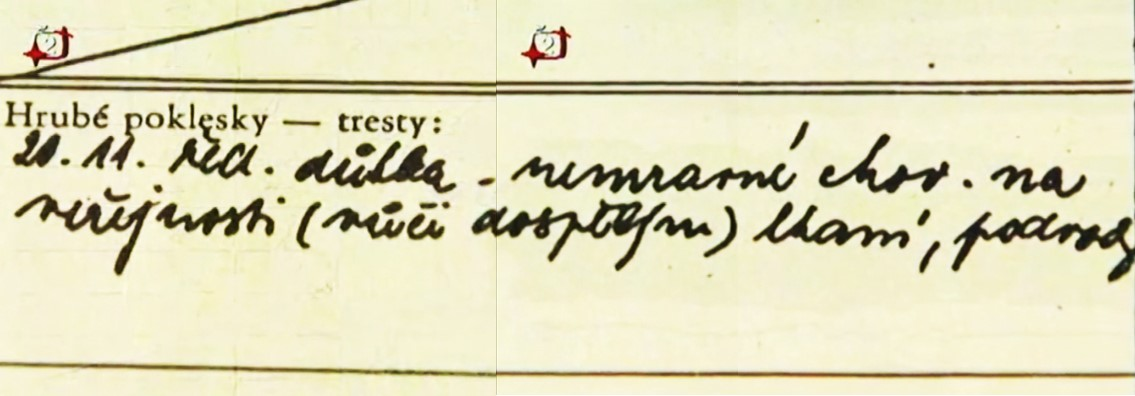 Hrubé poklesky — tresty:
20. 11. řed. důtka - nemravné chov. na
veřejnosti (vůči dospělým) lhaní, podvody